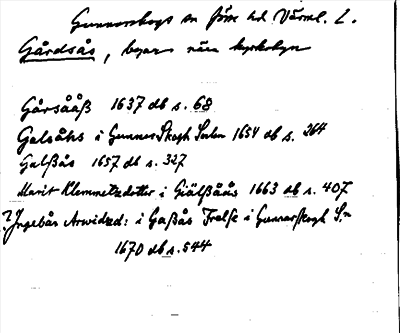 Gunnarskogs sn Jösse hd Värml. L.
Gårdsås, byar nära kyrkobyn
Gårsååß 1637 db s. 68
Galsåhs i Gunnerskogh Sochn 1654 db s. 264
Galßås 1657 db s. 327
Marit Klemmetzdotter i Giälßåås 1663 db s. 407
? Ingebår Arwidzd: i Gaßås Frelse i Gunnarskogh S:n
1670 db s. 544